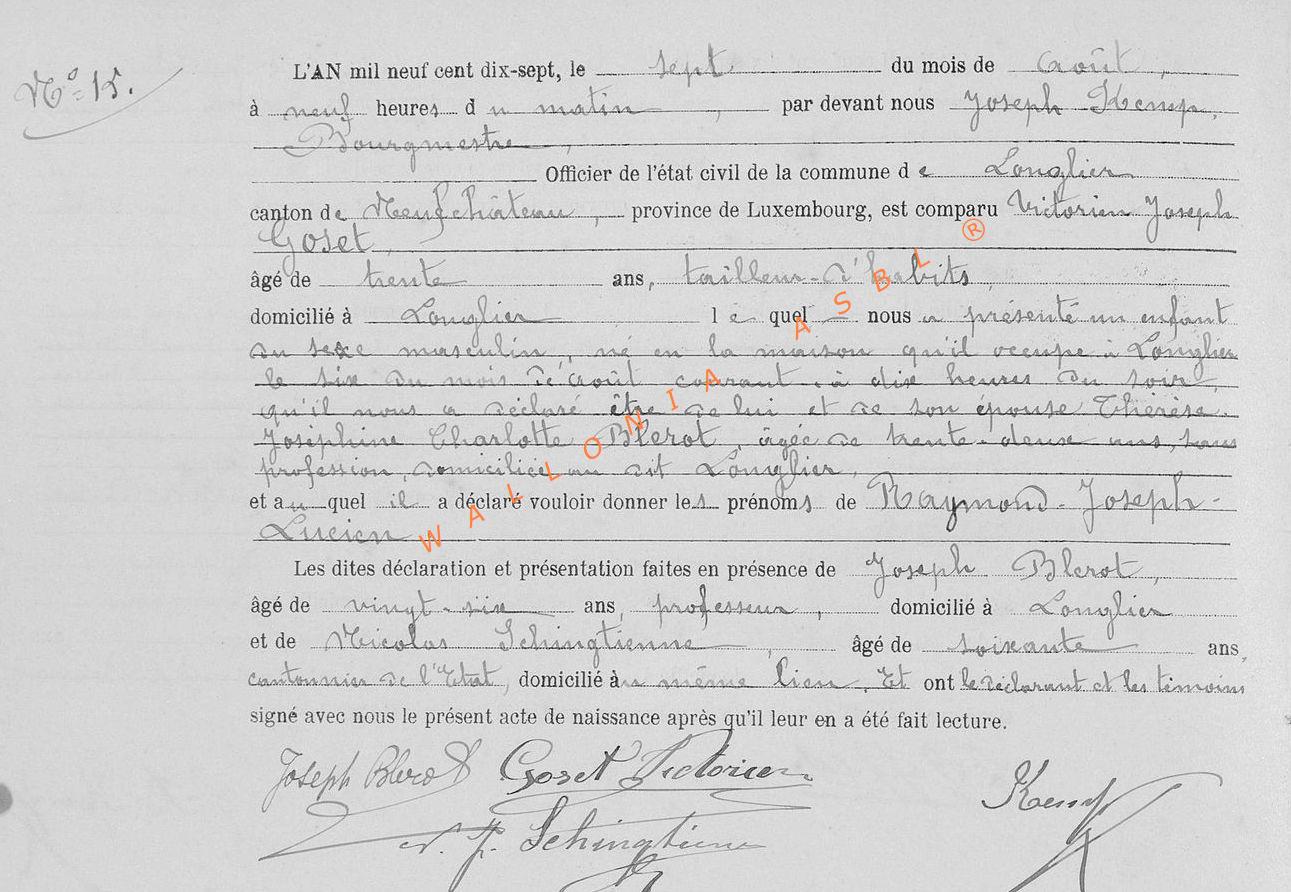 N° 15.
L'AN mil neuf cent dix-sept, le sept du mois de Août,
à neuf heures du matin, par devant nous Joseph Kemp,
Bourgmestre,
Officier de l'état civil de la commune de Longlier
canton de Neufchâteau, province de Luxembourg, est comparu Victorien Joseph
Goset,
âgé de trente ans, tailleur-d'habits,
domicilié à Longlier lequel nous a présenté un enfant
du sexe masculin, né en la maison qu'il occupe à Longlier
le six du mois d'août courant à dix heures du soir,
qu'il nous a déclaré être de lui et de son épouse Thérèse-
Joséphine Charlotte Blerot, âgée de trente-deux ans, sans
profession, domiciliée au dit Longlier,
et auquel il a déclaré vouloir donner les prénoms de Raymond-Joseph-
Lucien
Les dites déclaration et présentation faites en présence de Joseph Blerot,
âgé de vingt-six ans, professeur, domicilié à Longlier
et de Nicolas Schingtienne, âgé de soixante ans,
cantonnier de l'Etat, domicilié au même lieu. Et ont le déclarant et les témoins
signé avec nous le présent acte de naissance après qu'il leur en a été fait lecture.
Joseph Blerot Goset Victorien Kemp
Schingtienne
WALLONIA ASBL ®